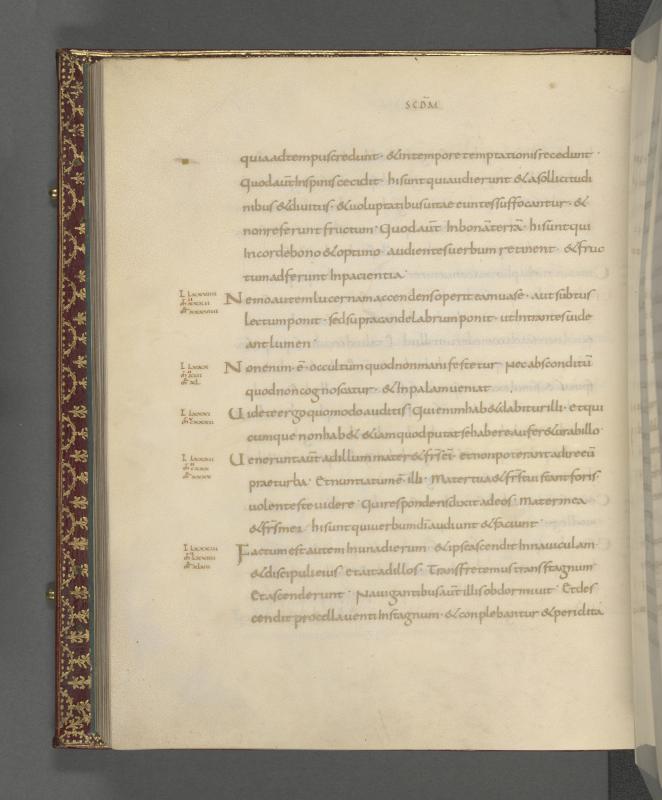 SCDM̄
quia ad tempus credunt · & in tempore temptationis recedunt ·
Quod aut̄ In spinis cecidit · hi sunt qui audierunt & a sollicitudi
nibus & divitiis · & voluptatibus vitae euntes suffocantur · &
non referunt fructum · Quod aut̄ In bonā terrā · hi sunt qui
In corde bono & optimo audientes verbum retinent · & fruc
tum adferunt In pacientia
Nemo autem lucernam accendens operit eam vase · aut subtus
lectum ponit · sed supra candelabrum ponit · ut Intrantes vide
ant lumen ·
Non enim · ē · occultum quod non manifestetur Nec absconditū
quod non cognoscatur · & In palam veniat
Videte ergo quomodo auditis · Qui enim hab& dabitur illi · et qui
cumque non hab& & iam quod putat se habere aufer&ur ab illo
Venerunt aut̄ ad illum mater & fr̄s ei · et non poterant adire eū
prae turba · Et nuntiatum ē illi · Mater tua & fr̄s tui stant foris
volentes te videre · Qui respondens dixit ad eos · Mater mea
& fr̄s mei hi sunt qui verbum dī audiunt & faciunt ·
Factum est autem In una dierum · & ipse ascendit In naviculam ·
& discipuli eius et ait ad illos · Transfretemus trans stagnum
Et ascenderunt · Navigantibus aut̄ illis obdormivit · Et des
cendit procella venti In stagnum · & conplebantur & periclita